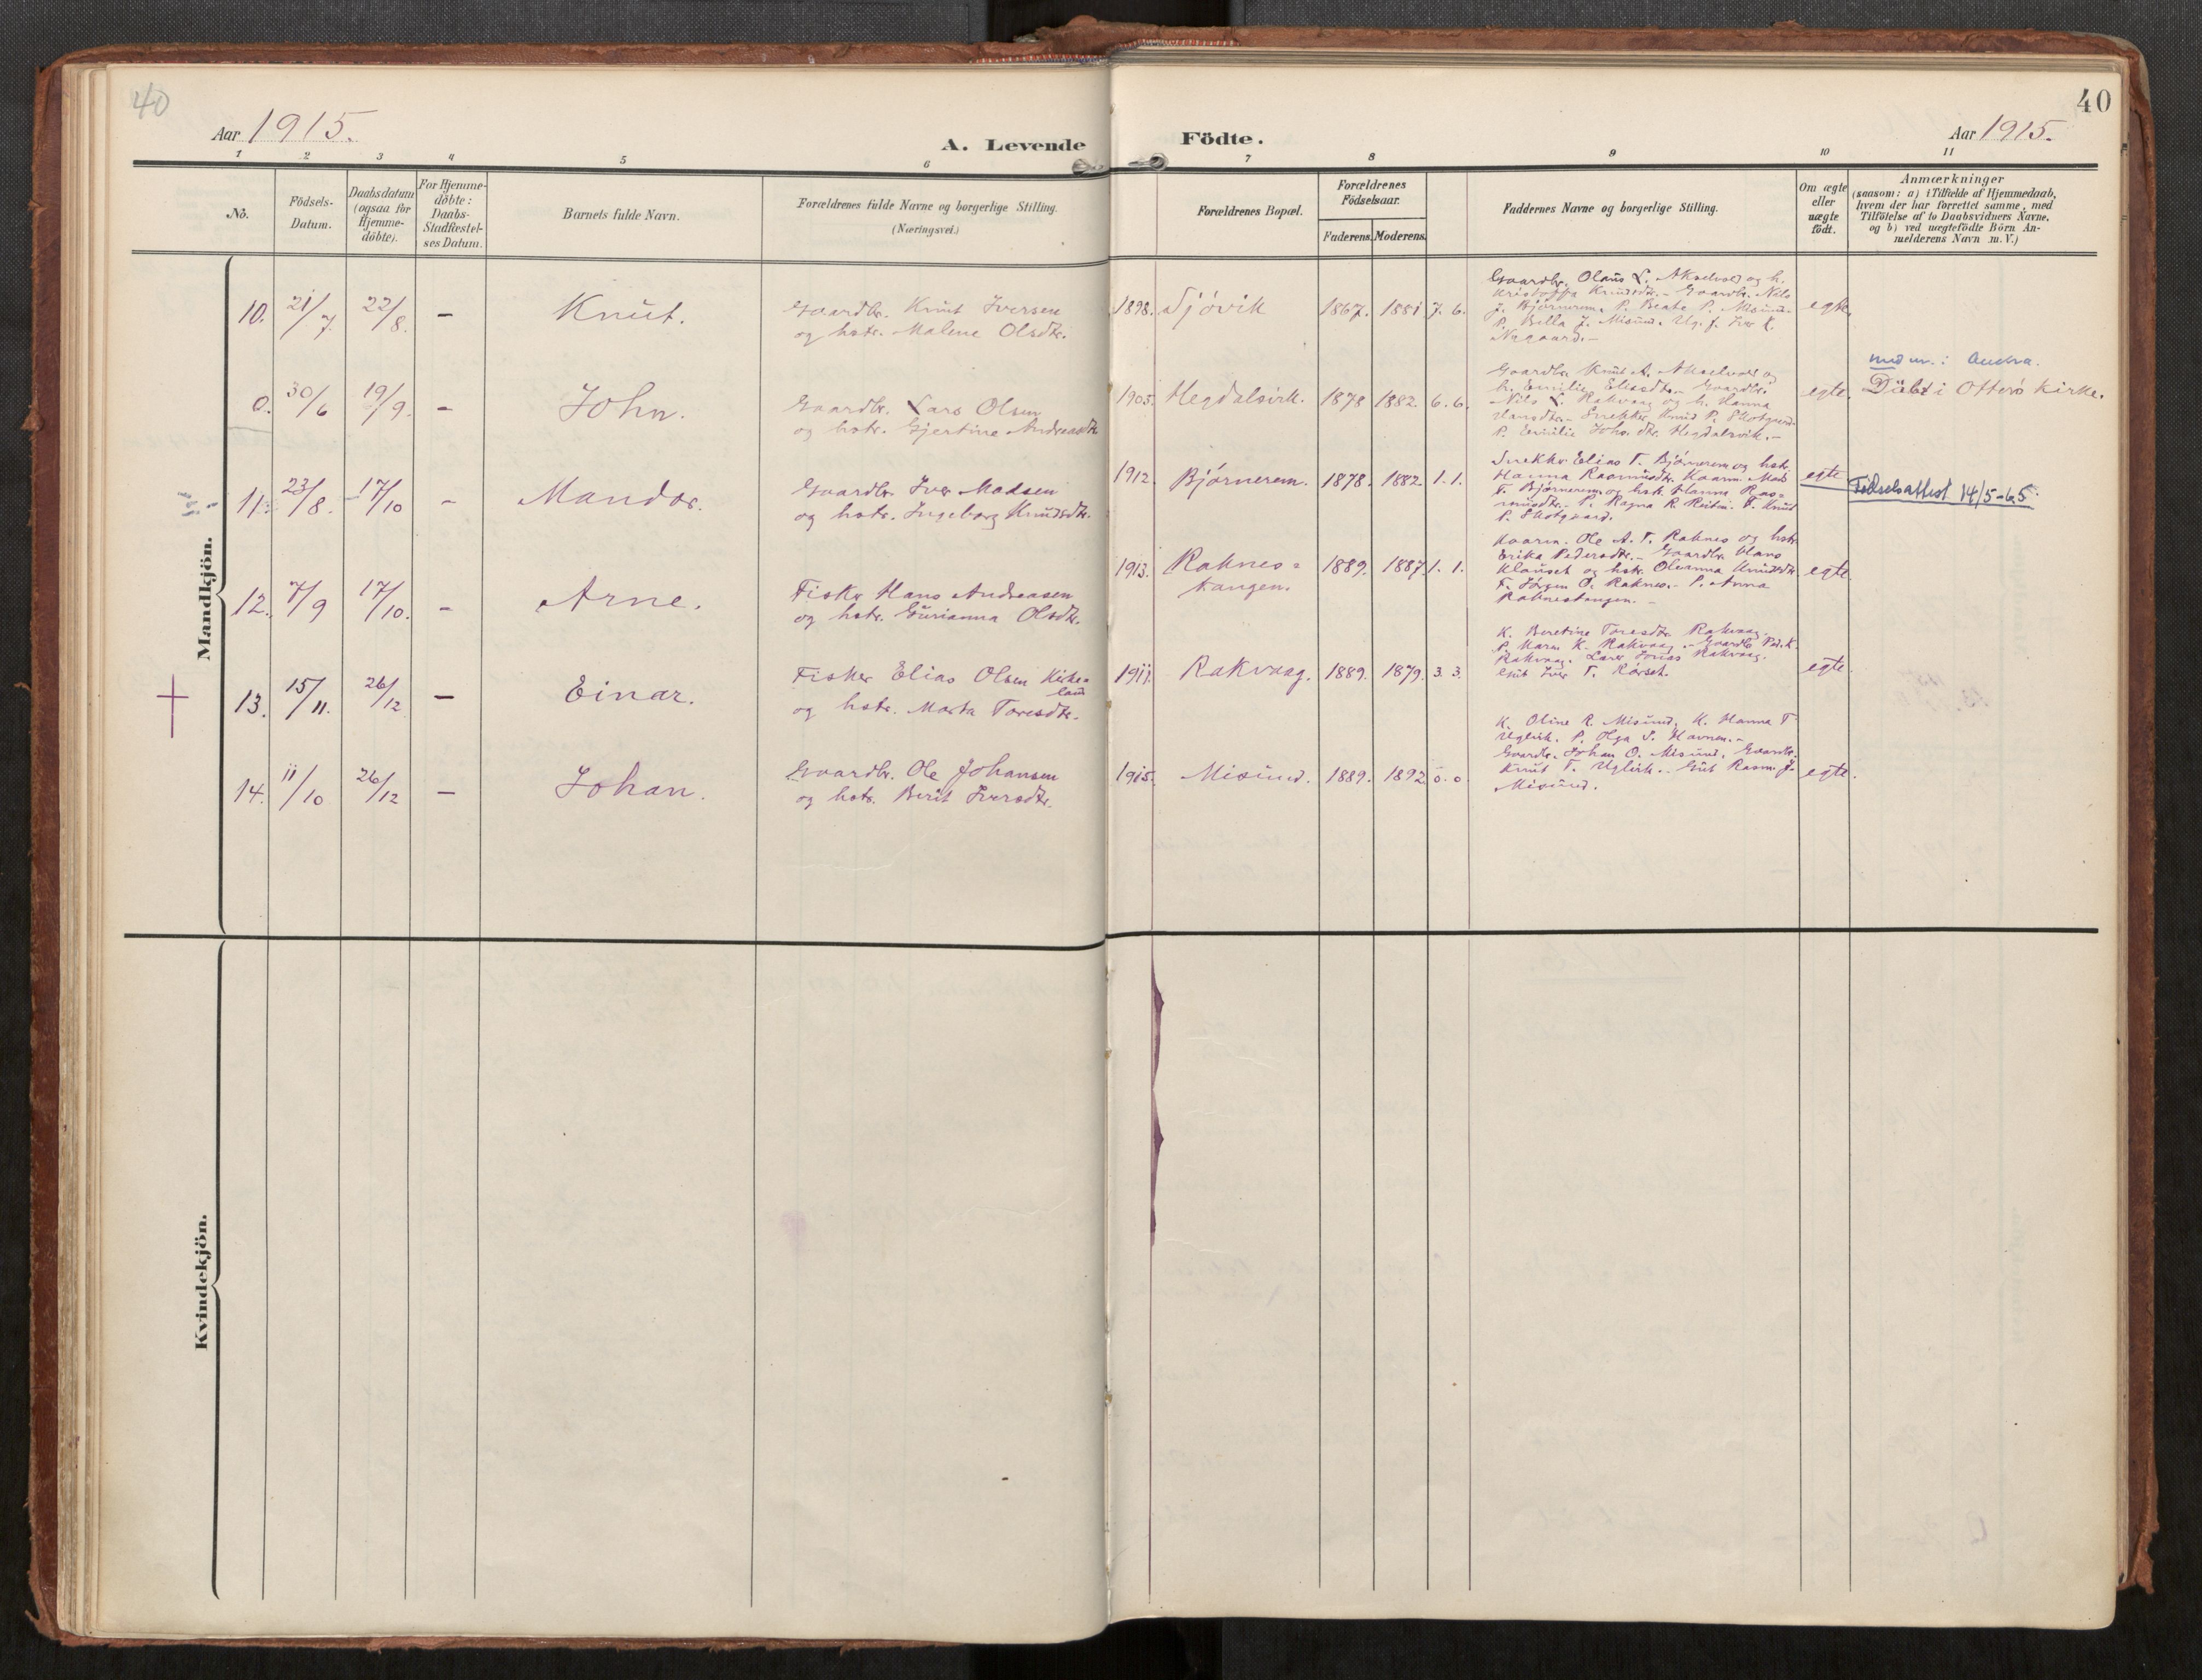 40
Aar 1915.
A. Levende
Födte.
Aar 1915.
40
1 2 3 4 5 6 7 8 9 10 11
No.
Födsels-
Datum.
Daabsdatum
(ogsaa for
Hjemme-
döbte).
For Hjemme-
döbte:
Daabs-
Stadfæstel-
ses Datum.
Barnets fulde Navn.
Forældrenes fulde Navne og borgerlige Stilling.
(Næringsvei.)
Forældrenes Bopæl.
Forældrenes
Födselsaar.
Faderens. Moderens.
Faddernes Navne og borgerlige Stilling.
Om ægte
eller
uægte
födt.
Anmærkninger
(saasom: a) i Tilfælde af Hjemmedaab,
hvem der har forrettet samme, med
Tilföielse af to Daabsvidners Navne,
og b) ved uægtefödte Börn An-
melderens Navn m. V.)
Mandkjön.
10. 21/7. 22/8. – Knut.
Gaardbr. Knut Iversen
og hstr. Malene Olsdtr.
1898. Sjövik 1867. 1881 7. 6.
Gaardbr. Olaus L. Akselvold og h.
Kristoffa Knudsdtr. – Gaardbr. Nils
J. Björnerem. P. Beate P. Misund.
P. Bella J. Misund. Ug. f. Iver K.
Nygaard. –
egte.
0. 30/6 19/9. – John.
Gaardbr. Lars Olsen
og hstr. Gjertine Andreasdtr.
1905. Hegdalsvik. 1878 1882. 6. 6.
Gaardbr. Knut A. Akselvold og
h. Emilie Eliasdtr. – Gaardbr.
Nils L. Rakvaag og h. Hanna
Hansdtr. – Snekker Knud P. Skotgurd.
P. Emilie Johs. dtr. Hegdalsvik. –
egte.
: Aukra.
Döbt i Otterö Kirke.
11. 23/8. 17/10 – Mandor.
Gaardbr. Iver Madsen
og hstr. Ingeborg Knudsdtr.
1912. Björnerem. 1878. 1882. 1. 1.
Snekker Elias T. Björnerem og hstr.
Hanna Rasmusdtr. Kaarm. Mads
T. Björnerem og hstr. Hanna Ras=
musdtr. – P. Ragna R. Reiten. F. Knud
P. Skotgaard.
egte
Fødselsattest 14/5-65.
12. 7/9 17/10. – Arne.
Fisker Hans Andreasen
og hstr. Gurianna Olsdtr.
1913. Raknes=
tangen. 1889. 1887. 1. 1.
Kaarm. Ole A. T. Raknes og hstr.
Erika Pedersdtr. – Gaardbr. Hans
Klauset og hstr. Oleanna Knudsdtr.
F. Jörgen O. Raknes. – P. Anna
Raknestangen. –
egte.
13. 15/11. 26/12 – Einar.
Fisker Elias Olsen Kirke=
land
og hstr. Marta Toresdtr.
1911. Rakvaag. 1889. 1879. 3. 3.
K. Beretine Toresdtr. Rakvaag.
P. Maren K. Rakvaag. – Gaardbr. Ped. K.
Rakvaag. Lars Jonas Rakvaag.
Gut Iver T. Rörset.
egte.
14. 11/10 26/12 – Johan.
Gaardbr. Ole Johansen
og hstr. Berit Iversdtr.
1915. Misund. 1889. 1892. 0. 0.
K. Oline R. Misund, K. Hanna T.
Uglvik. P. Olga S. Havnen. –
Gaardbr. Johan O. Misund, Gaardbr.
Knut T. Uglvik. – Gut Rasm. J.
Misund.
egte.
Kvindekjön.